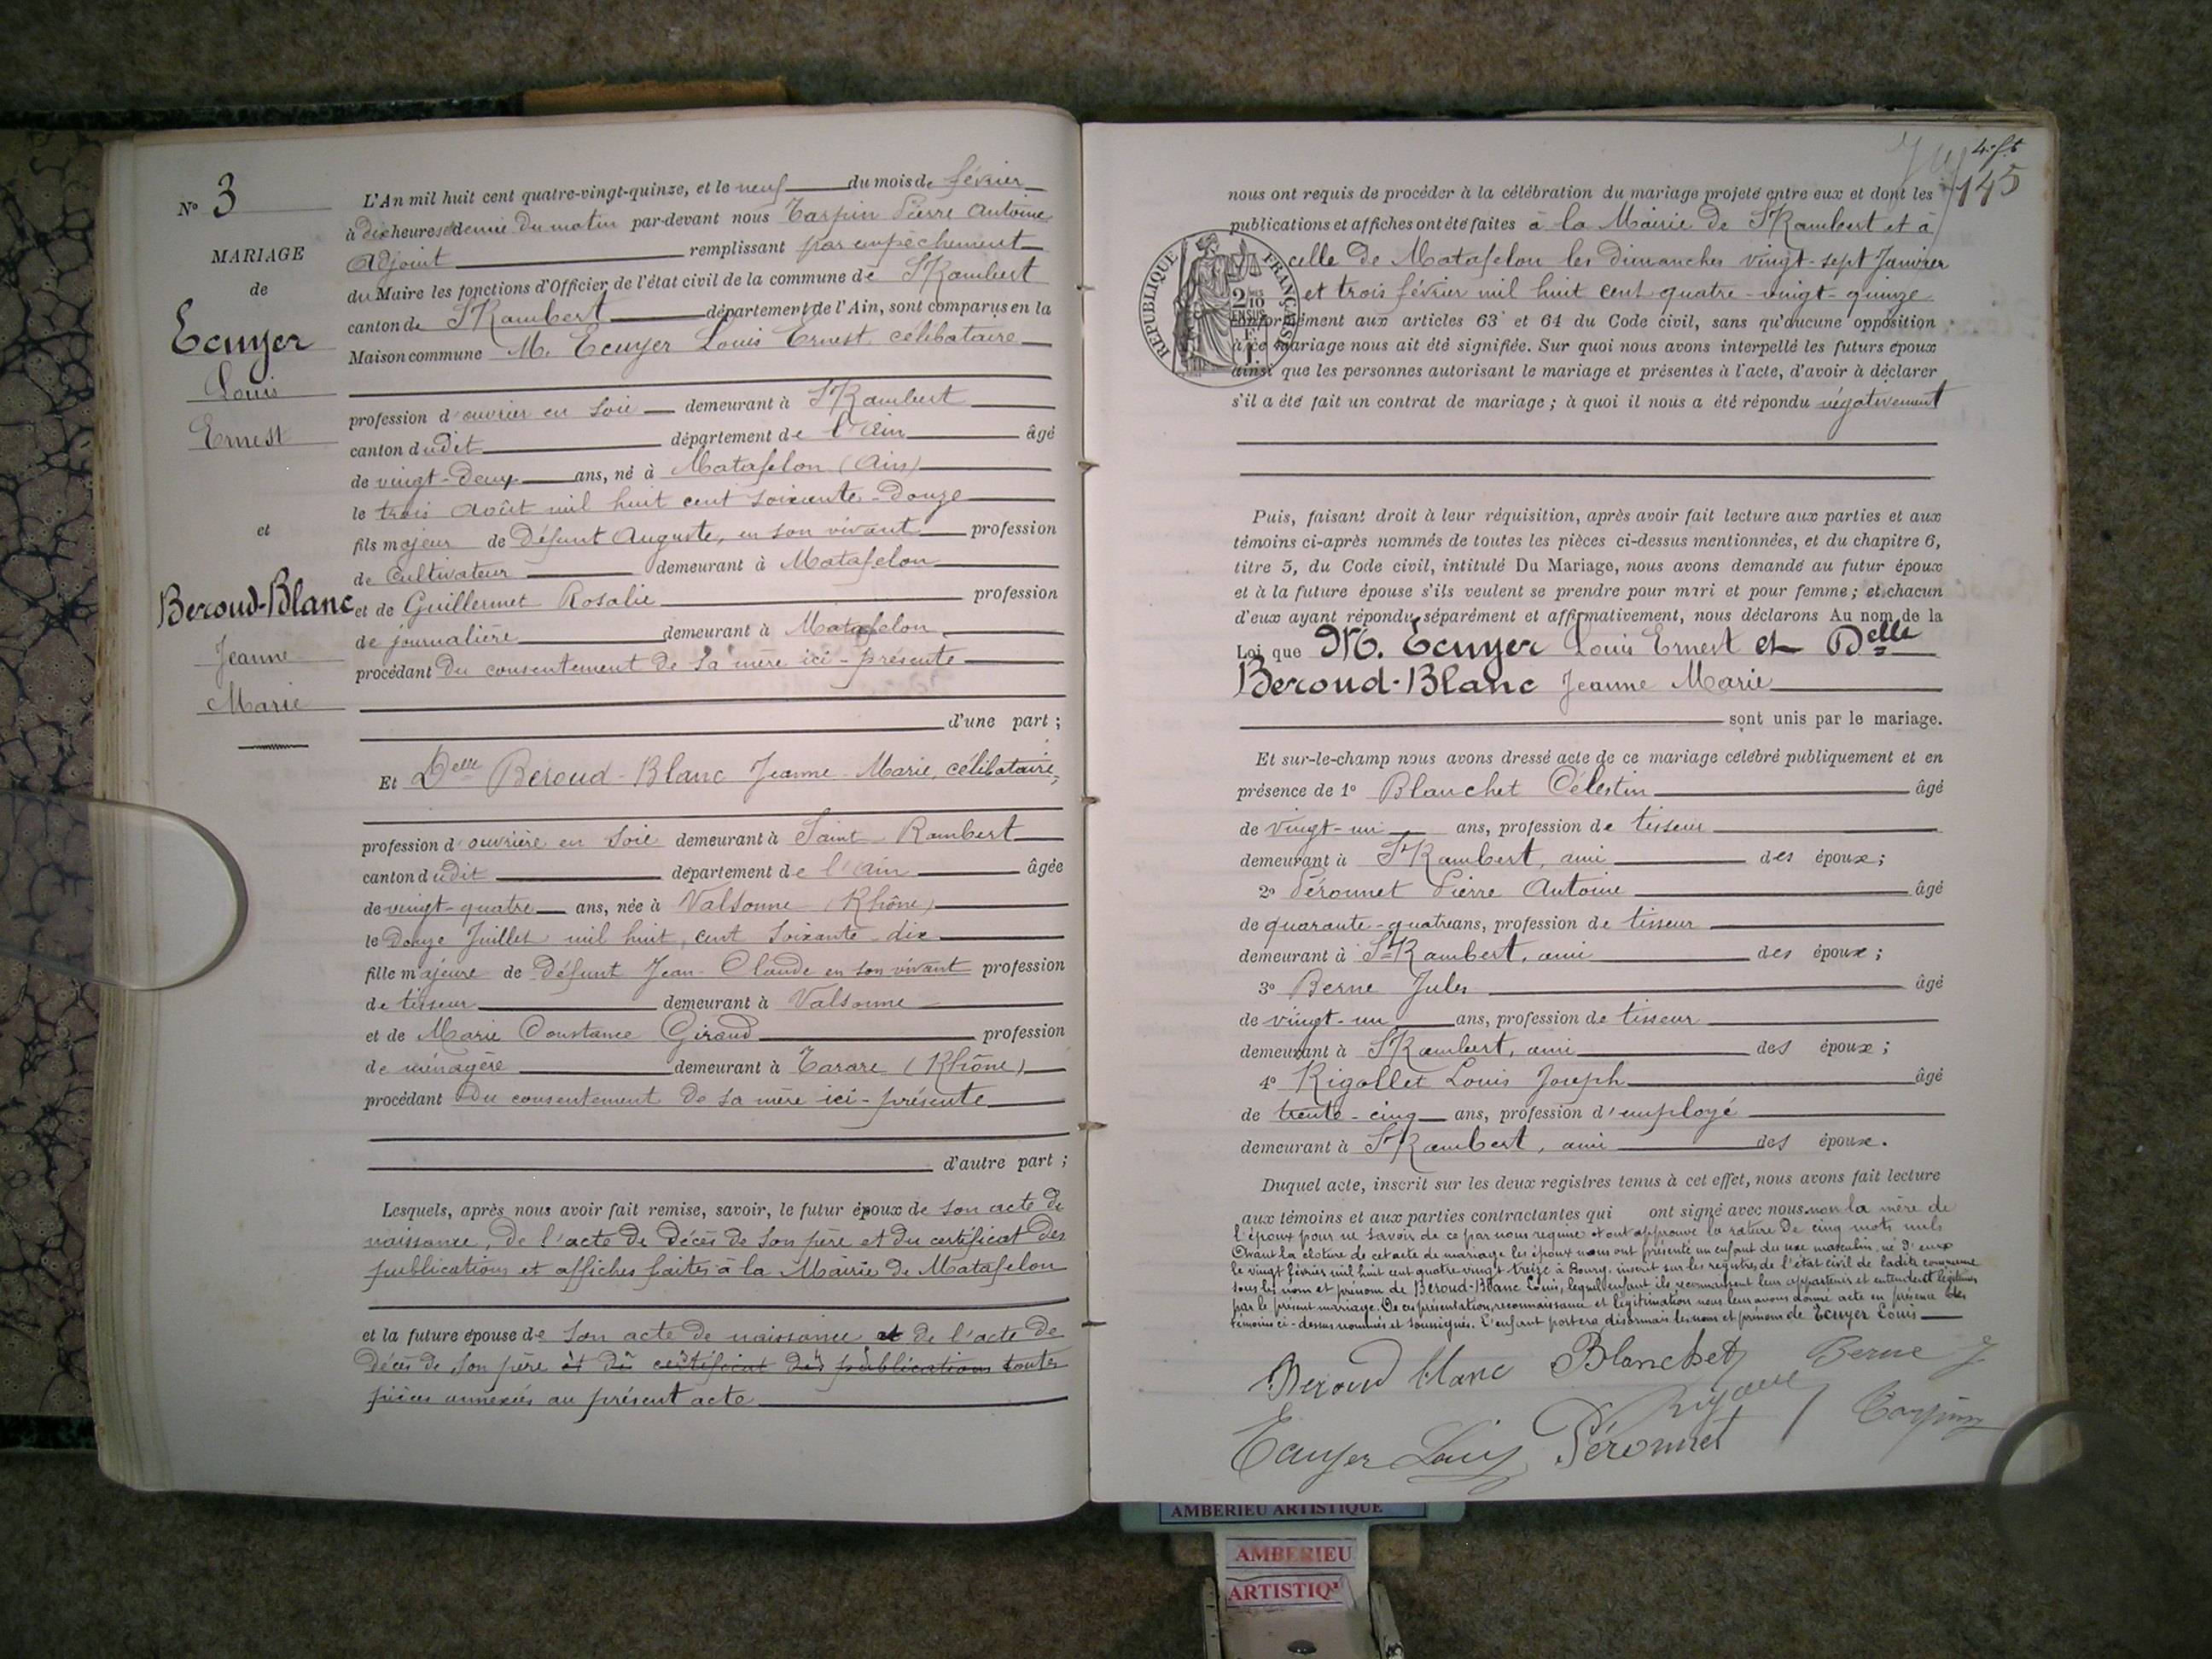 N° 3
MARIAGE
de
Ecuyer
Louis
Ernest
et
Beroud-Blanc
Jeanne
Marie
L'An mil huit cent quatre-vingt-quinze, et le neuf du mois de février
à dix heures et demie du matin par-devant nous Tarpin Pierre Antoine
Adjoint remplissant par empêchement
du Maire les fonctions d'Officier de l'état civil de la commune de St Rambert
canton de St Rambert département de l'Ain, sont comparus en la
Maison commune M. Ecuyer Louis Ernest, célibataire
profession d'ouvrier en soie demeurant à St Rambert
canton dudit département de l'Ain âgé
de vingt-deux ans, né à Matafelon (Ain)
le trois Août mil huit cent soixante-douze
fils majeur de Défunt Auguste, en son vivant profession
de Cultivateur demeurant à Matafelon
et de Guillermet Rosalie profession
de journalière demeurant à Matafelon
procédant du consentement de sa mère ici-présente
d'une part ;
Et Delle Béroud-Blanc Jeanne-Marie, célibataire,
profession d'ouvrière en soie demeurant à Saint-Rambert
canton dudit département de l'Ain âgée
de vingt-quatre ans, née à Valsonne (Rhône)
le Douze Juillet mil huit cent soixante-dix
fille majeure de Défunt Jean-Claude en son vivant profession
de tisseur demeurant à Valsonne
et de Marie Constance Giraud profession
de ménagère demeurant à Tarare (Rhône)
procédant du consentement de sa mère ici-présente
d'autre part ;
Lesquels, après nous avoir fait remise, savoir, le futur époux de son acte de
naissance, de l'acte de décès de son père et du certificat des
publications et affiches faites à la Mairie de Matafelon
et la future épouse de son acte de naissance et de l'acte de
Décès de son père et du certificat des publications toutes
pièces annexées au présent acte
4e ft
145
nous ont requis de procéder à la célébration du mariage projeté entre eux et dont les
publications et affiches ont été faites à la Mairie de St Rambert et à
celle de Matafelon les dimanches vingt-sept Janvier
et trois février mil huit cent quatre-vingt-quinze
RÉPUBLIQUE FRANÇAISE
2/10 EN SUS
conformément aux articles 63 et 64 du Code civil, sans qu'aucune opposition
à ce mariage nous ait été signifiée. Sur quoi nous avons interpellé les futurs époux
ainsi que les personnes autorisant le mariage et présentes à l'acte, d'avoir à déclarer
s'il a été fait un contrat de mariage ; à quoi il nous a été répondu négativement
Puis, faisant droit à leur réquisition, après avoir fait lecture aux parties et aux
témoins ci-après nommés de toutes les pièces ci-dessus mentionnées, et du chapitre 6,
titre 5, du Code civil, intitulé Du Mariage, nous avons demandé au futur époux
et à la future épouse s'ils veulent se prendre pour mari et pour femme ; et chacun
d'eux ayant répondu séparément et affirmativement, nous déclarons Au nom de la
Loi que M. Ecuyer Louis Ernest et Delle
Beroud-Blanc Jeanne Marie
sont unis par le mariage.
Et sur-le-champ nous avons dressé acte de ce mariage célébré publiquement et en
présence de 1° Blanchet Célestin âgé
de vingt-un ans, profession de tisseur
demeurant à St Rambert, ami des époux ;
2° Péronnet Pierre Antoine âgé
de quarante-quatre ans, profession de tisseur
demeurant à St Rambert, ami des époux ;
3° Berne Jules âgé
de vingt-un ans, profession de tisseur
demeurant à St Rambert, ami des époux ;
4° Rigollet Louis Joseph âgé
de trente-cinq ans, profession d'employé
demeurant à St Rambert, ami des époux.
Duquel acte, inscrit sur les deux registres tenus à cet effet, nous avons fait lecture
aux témoins et aux parties contractantes qui ont signé avec nous non la mère de
l'époux pour ne savoir de ce par nous requise et ont approuvé la rature de cinq mots nuls
Avant la clôture de cet acte de mariage les époux nous ont présenté un enfant du sexe masculin, né d'eux
le vingt février mil huit cent quatre-vingt-treize à Bourg, inscrit sur les registres de l'état civil de ladite commune
sous les nom et prénom de Beroud-Blanc Louis, lequel enfant ils reconnaissent leur appartenir et entendent légitimer
par le présent mariage. De ces présentation, reconnaissance et légitimation nous leur avons donné acte en présence des
témoins ci-dessus nommés et soussignés. L'enfant portera désormais les nom et prénom de Ecuyer Louis
Beroud blanc Blanchet Berne J
Ecuyer Louis Péronnet Tarpin
AMBERIEU ARTISTIQUE
AMBERIEU
ARTISTIQ